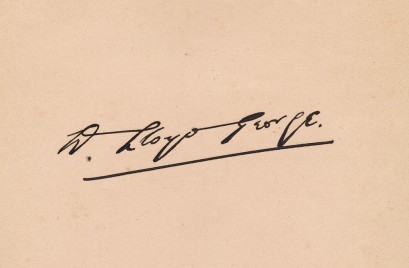 D. Lloyd George.